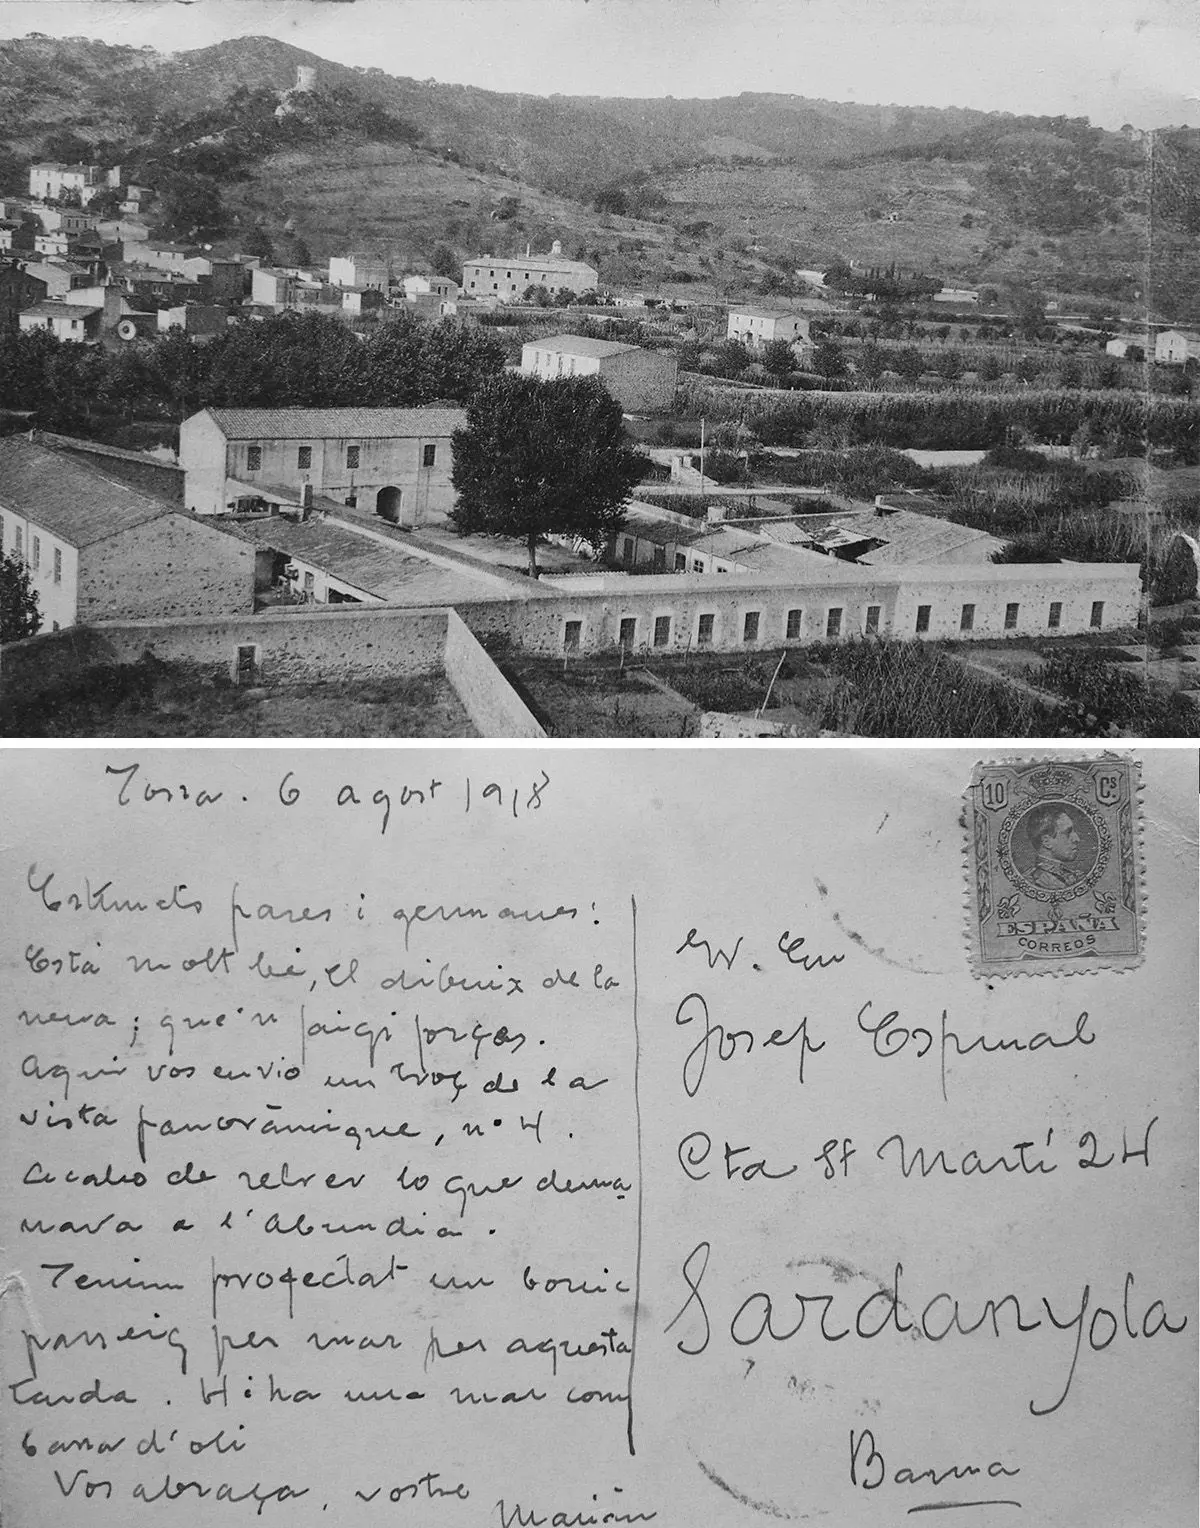 Tossa. 6 agost 1918
Estimats pares i germanes:
Està molt bé, el dibuix de la
neva; que'n faigi forçes.
Aquí vos envio un troç de la
vista panoràmique, nº 4.
Acabo de rebrer lo que dema-
nava a l'Abundia.
Tenim projectat un bonic
passeig per mar per aquesta
tarda. Hi ha una mar com
bassa d'oli
Vos abraça, vostre
Marián
10 Cs.
ESPAÑA
CORREOS
Josep Espinal
Cta St Martí 24
Sardanyola
Barna